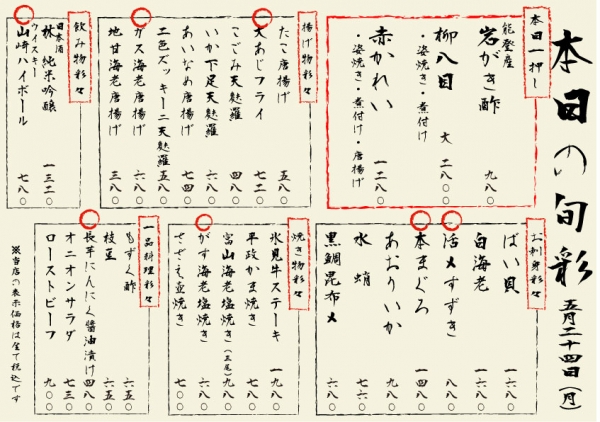 本日の旬彩
五月二十四日(月)
本日一押し
能登産
岩がき酢 九八〇
柳八目 大 二八〇〇
・姿焼き・煮付け
赤かれい 一二八〇
・姿焼き・煮付け・唐揚げ
揚げ物彩々
たこ唐揚げ 五八〇
大あじフライ 七二〇
こごみ天麩羅 四八〇
いか下足天麩羅 六八〇
あいなめ唐揚げ 七四〇
二色ズッキーニ天麩羅 五八〇
ガス海老唐揚げ 六八〇
地甘海老唐揚げ 三八〇
飲み物彩々
日本酒
林 純米吟醸 一三二〇
ウイスキー
山崎ハイボール 七八〇
お刺身彩々
ばい貝 一六八〇
白海老 一六八〇
活〆すずき 八八〇
本まぐろ 一四八〇
あおりいか 九八〇
水蛸 七六〇
黒鯛昆布〆 六八〇
焼き物彩々
氷見牛ステーキ 一九八〇
平政かま焼き 七八〇
富山海老塩焼き(三尾) 九八〇
がす海老塩焼き 六八〇
さざえ壺焼き 七〇〇
一品料理彩々
もずく酢 六五〇
枝豆 六五〇
長芋にんにく醬油漬け 四八〇
オニオンサラダ 七三〇
ローストビーフ 九〇〇
※当店の表示価格は全て税込です